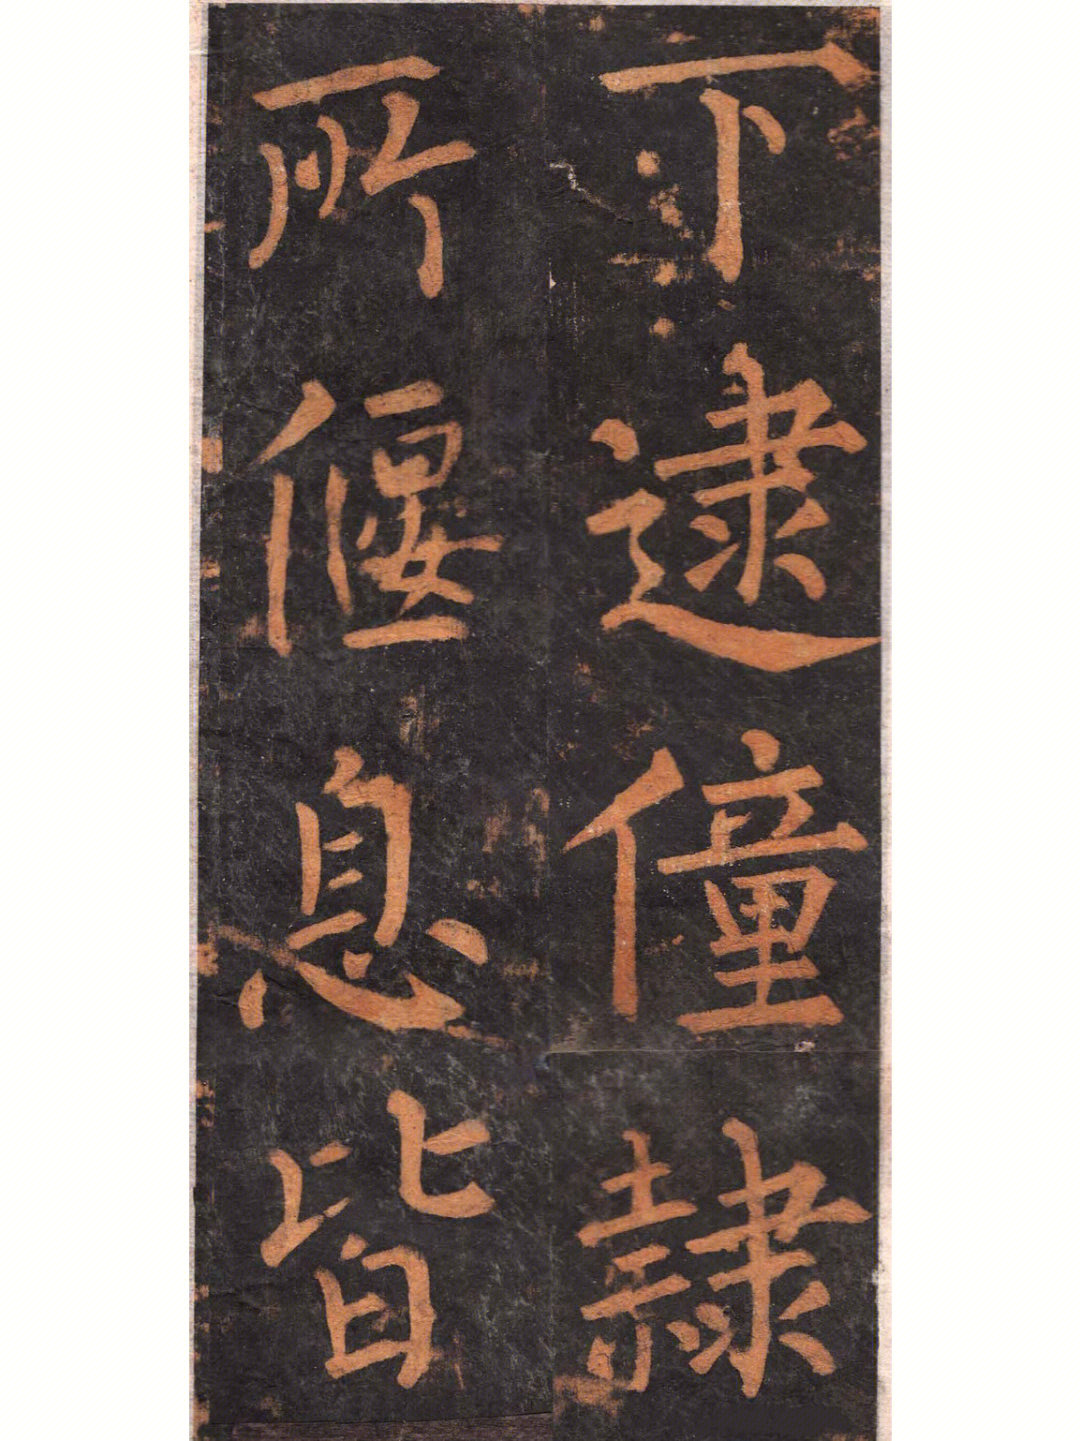 下逮僮隸
所偃息皆